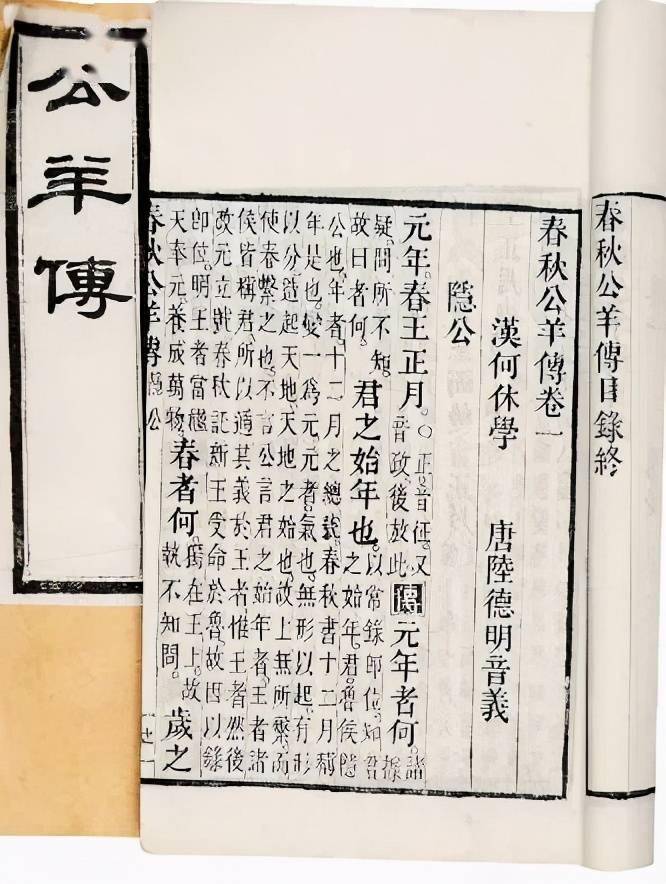 春秋公羊傳目錄終
春秋公羊傳卷一
漢何休學 唐陸德明音義
隱公
元年春王正月。○正音征。又音政後放此 傳 元年者何。諸據
疑問所不知。故曰者何。君之始年也。以常錄即位知君之始年。君魯侯隱
公也。年者十二月之總號。春秋書十二月稱
年是也。變一爲元。元者。氣也。無形以起有形
以分。造起天地。天地之始也。故上無所繫。而
使春繫之也。不言公言君之始年者。王者諸
侯皆稱君。所以通其義於王者。惟王者然後
改元立號。春秋託新王受命於魯。故因以錄
即位。明王者當繼
天奉元。養成萬物。春者何。獨在王上。故執不知問。歲之
春秋公羊傳 隱公
公羊傳